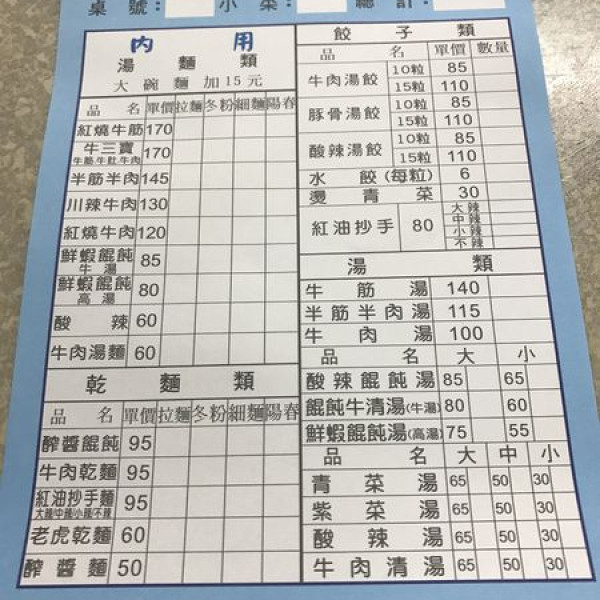 桌號: 小菜: 總計:
內用
湯麵類
大碗麵加15元
品名 單價 拉麵 冬粉 細麵 陽春
紅燒牛筋 170
牛三寶 170
牛筋.牛肚.牛肉
半筋半肉 145
川辣牛肉 130
紅燒牛肉 120
鮮蝦餛飩 85
牛湯
鮮蝦餛飩 80
高湯
酸辣 60
牛肉湯麵 60
乾麵類
品名 單價 拉麵 冬粉 細麵 陽春
醡醬餛飩 95
牛肉乾麵 95
紅油抄手麵 95
大辣/中辣/小辣/不辣
老虎乾麵 60
醡醬麵 50
餃子類
品名 單價 數量
牛肉湯餃 10粒 85
15粒 110
豚骨湯餃 10粒 85
15粒 110
酸辣湯餃 10粒 85
15粒 110
水餃(每粒) 6
燙青菜 30
紅油抄手 80 大辣
中辣
小辣
不辣
湯類
牛筋湯 140
半筋半肉湯 115
牛肉湯 100
品名 大 小
酸辣餛飩湯 85 65
餛飩牛清湯(牛湯) 80 60
鮮蝦餛飩湯(高湯) 75 55
品名 大 中 小
青菜湯 65 50 30
紫菜湯 65 50 30
酸辣湯 65 50 30
牛肉清湯 65 50 30